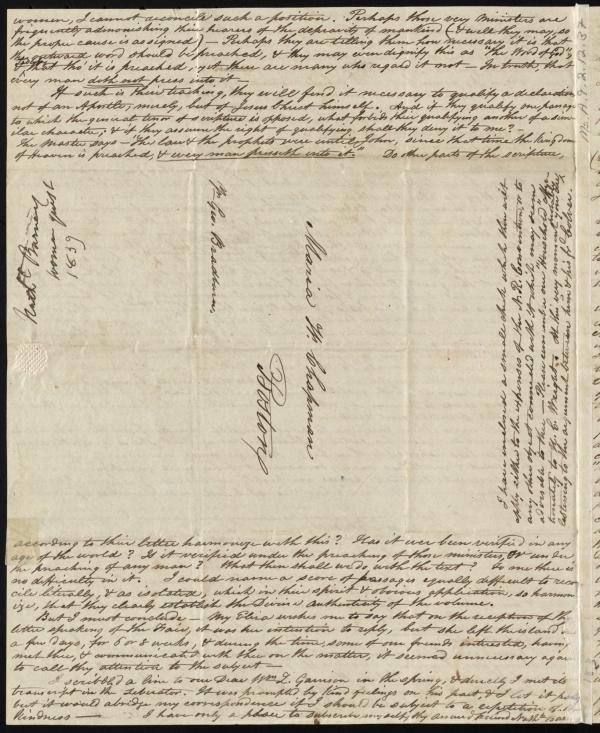 women, I cannot reconcile such a position. Perhaps those very Ministers are
frequently admonishing their hearers of the depravity of mankind (& well they may, so
the proper cause is assigned) – Perhaps they are telling them how necessary it is that
the word should be preached, & they may even dignify this as "the Word of God"
& that tho' it is preached, yet there are many who regard it not – In truth, that
every man doth not press into it –
If such is their teaching, they will find it necessary to qualify a declaration
not of an Apostle, merely, but of Jesus Christ himself. And if they qualify one passage
to which the general tenor of scripture is opposed, what forbids their qualifying another of a sim-
ilar character, & if they assume the right of qualifying shall they deny it to me? –
The Master says – The law & the prophets were until John, since that time the kingdom
of Heaven is preached, & every man presseth into it." Do other parts of the scripture,
according to their letter harmonize with this? Has it ever been verified in any
age of the world? Is it verified under the preaching of those ministers, or under
the preaching of any man? What then shall we do with the text? To me there is
no difficulty in it. I could name a score of passages equally difficult to recon
cile literally, & as isolated, which in their spirit & obvious application, so harmon
ize, that they clearly establish the Divine authenticity of the volume.
But I must conclude – My Eliza wishes me to say that on the reception of thy
letter speaking of the Fair, it was her intention to reply, but she left the island in
a few days, for 6 or 8 weeks, & during the time, some of our friends interested, having
met thee, & communicated with thee on the matter, it seemed unnecessary again
to call thy attention to the subject –
I scribbled a line to our Dear Wm L. Garrison in the spring, & directly I met its
transcript in the Liberator. It was prompted by kind feelings on his part, & I let it pass
but it would abridge my correspondence if I should be subject to a repetition of the
kindness – I have only a place to subscribe myself thy assured friend Nathl
Nathl Barney
woman quest
1839
Pr Geo. Bradburn
Maria W. Chapman
Boston
I have enclosed a small check which thou wilt
apply either to the expenses of the N.E. Convention, or to
any other object connected with it which may seem
advisable to thee – Please remember our "Household"
to H. C. Wright – At this very moment you may
listening to the argument between him & his Colver.
Ms. A.9.2.12.37